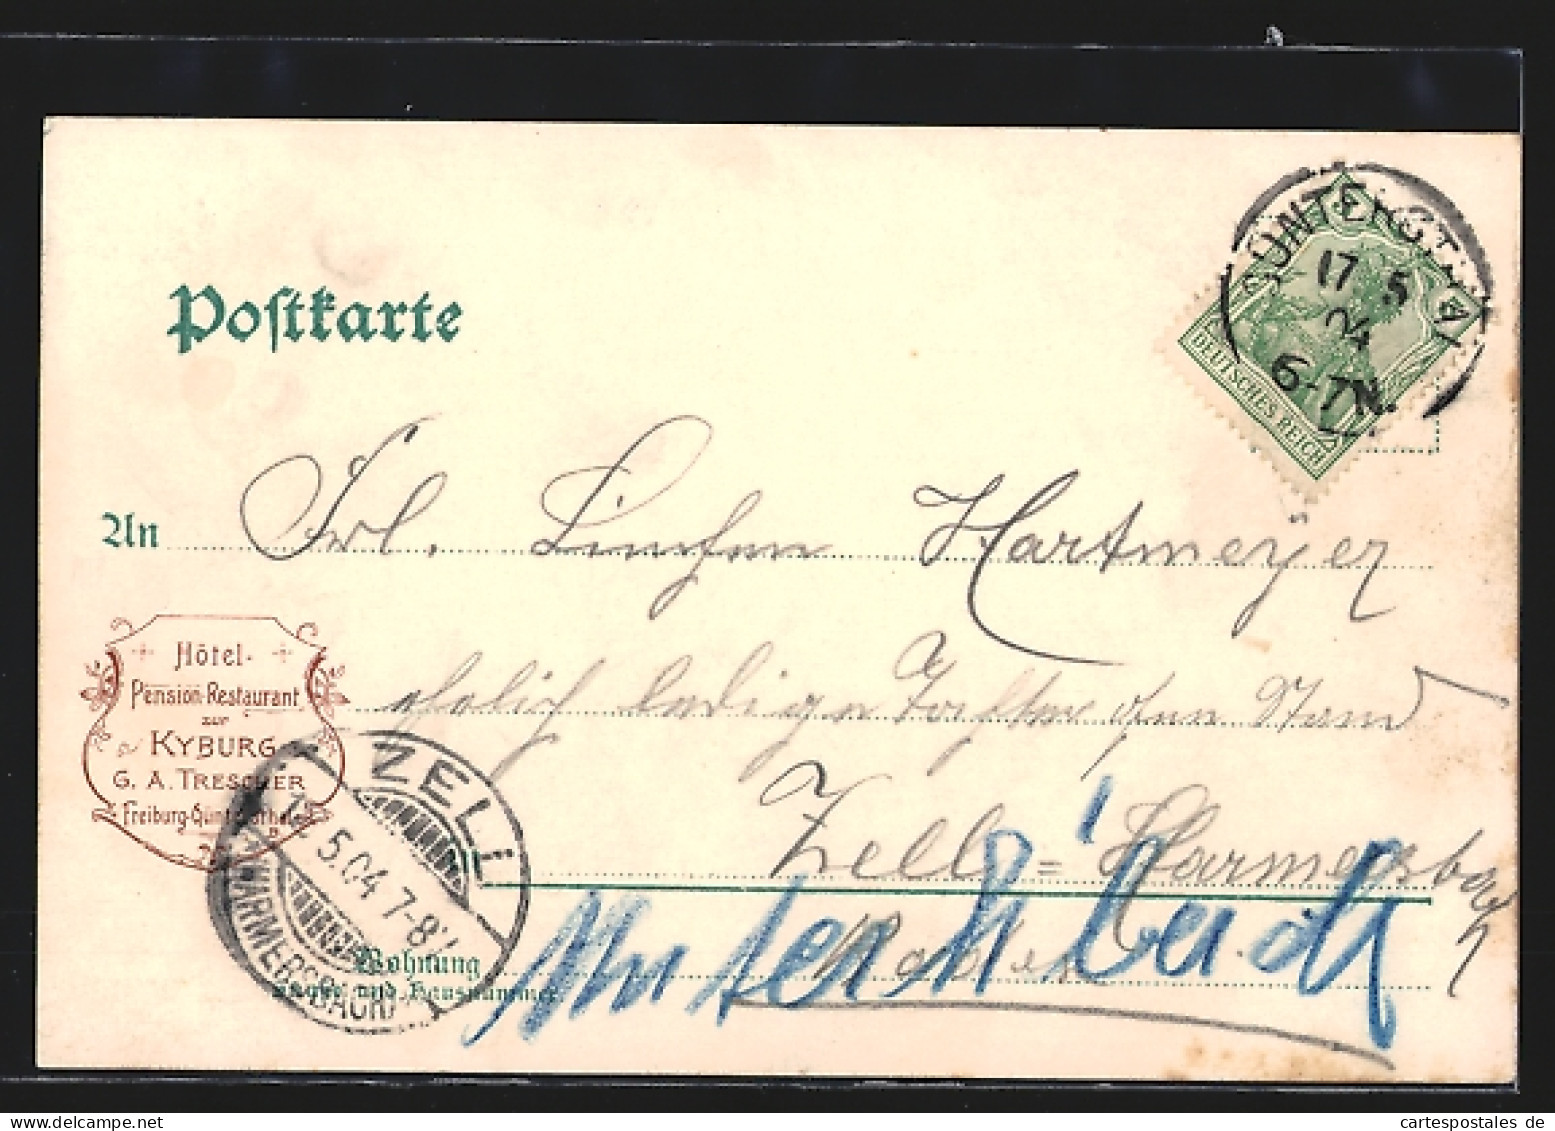 Postkarte
GÜNTERSTHAL
17 5
04
6-7N.
DEUTSCHES REICH
An Frl. Linchen Hartmeyer
Hôtel-
Pension-Restaurant
zur
KYBURG
G. A. TRESCHER
Freiburg-Günthersthal
ledige
Zell-Harmersbach
Baden
Unterharmersbach
ZELL
5.04 7-8
(HARMERSBACH)
Wohnung
Straße und Hausnummer
cartespostales de